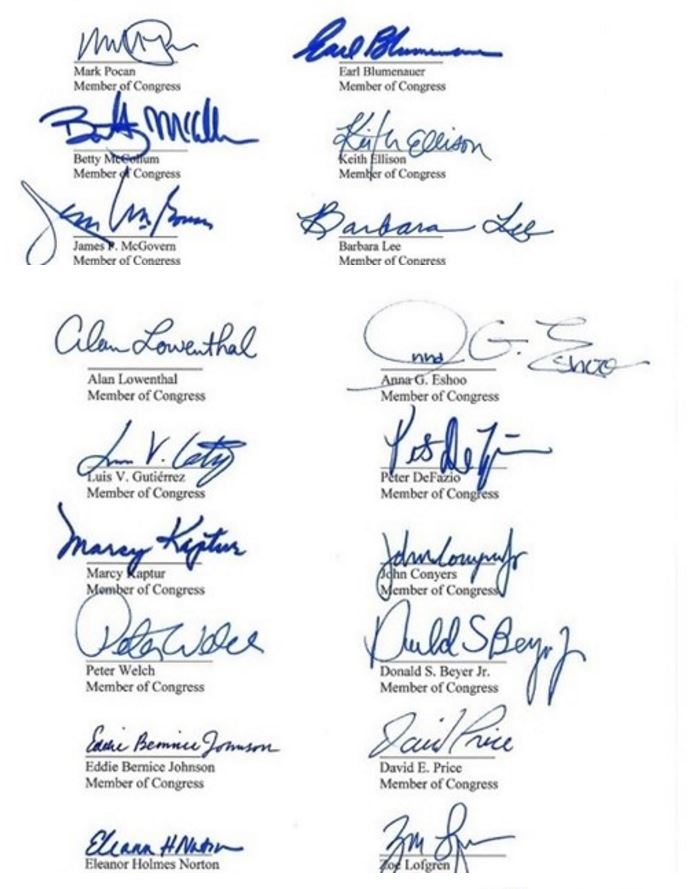 Earl Blumenauer
Mark Pocan
Earl Blumenauer
Member of Congress
Member of Congress
Betty
Keith Ellison
Betty McCollum
Keith Ellison
Member of Congress
Member of Congress
Barbara Lee
James P. McGovern
Barbara Lee
Member of Congress
Member of Congress
Alan Lowenthal
Anna G. Eshoo
Alan Lowenthal
Anna G. Eshoo
Member of Congress
Member of Congress
Luis V. Gutiérrez
Peter DeFazio
Member of Congress
Member of Congress
Marcy Kaptur
John Conyers Jr
Marcy Kaptur
John Conyers
Member of Congress
Member of Congress
Peter Welch
Donald S Beyer Jr
Peter Welch
Donald S. Beyer Jr.
Member of Congress
Member of Congress
Eddie Bernice Johnson
David Price
Eddie Bernice Johnson
David E. Price
Member of Congress
Member of Congress
Eleanor H Norton
Eleanor Holmes Norton
Zoe Lofgren